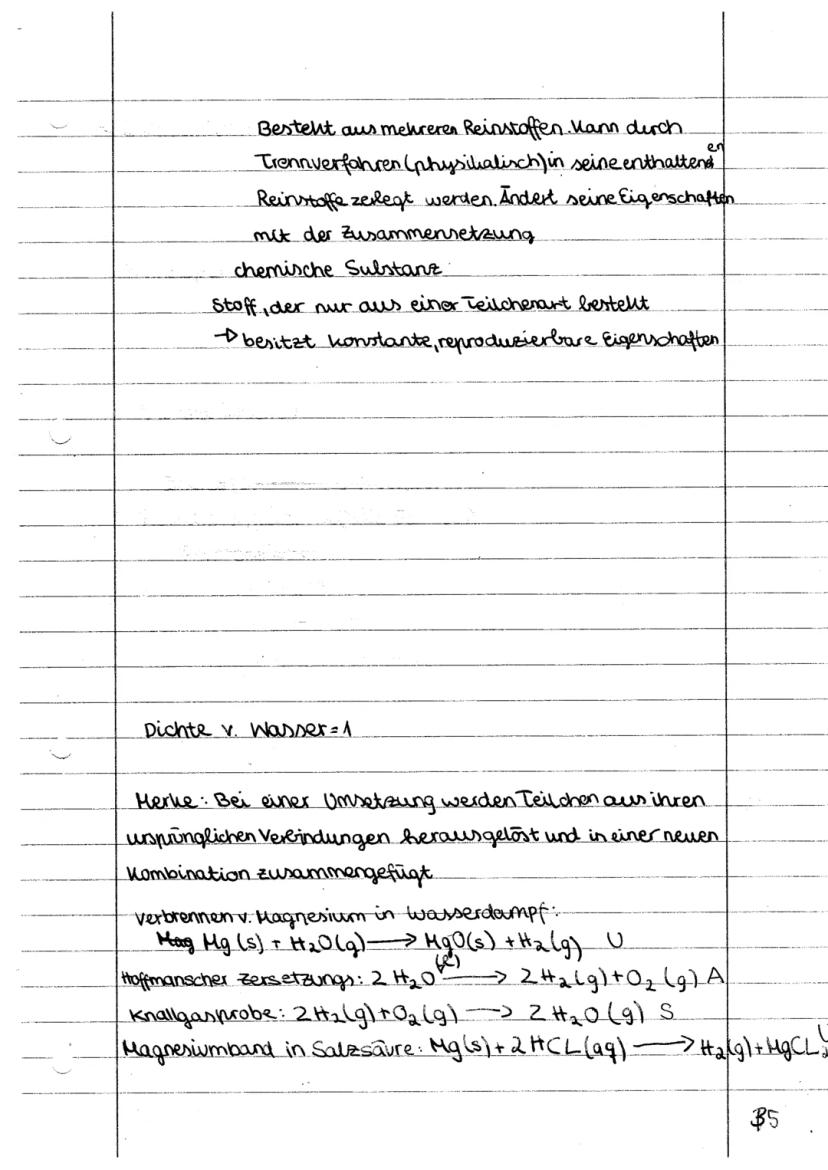 Besteht aus mehreren Reinstoffen. Kann durch
Trennverfahren (physikalisch) in seine enthaltenden
Reinstoffe zerlegt werden. Ändert seine Eigenschaften
mit der Zusammensetzung
chemische Substanz
Stoff, der nur aus einer Teilchenart besteht
→ besitzt konstante, reproduzierbare Eigenschaften
Dichte v. Wasser = 1
Merke: Bei einer Umsetzung werden Teilchen aus ihren
ursprünglichen Verbindungen herausgelöst und in einer neuen
Kombination zusammengefügt
Verbrennen v. Magnesium in Wasserdampf:
Mag Mg (s) + H₂O (g) → MgO (s) + H₂ (g) U
Hoffmanscher Zersetzungs: 2 H₂O (l) → 2 H₂ (g) + O₂ (g) A
Knallgasprobe: 2 H₂ (g) + O₂ (g) → 2 H₂O (g) S
Magnesiumband in Salzsäure: Mg (s) + 2 HCL (aq) → H₂ (g) + MgCL₂